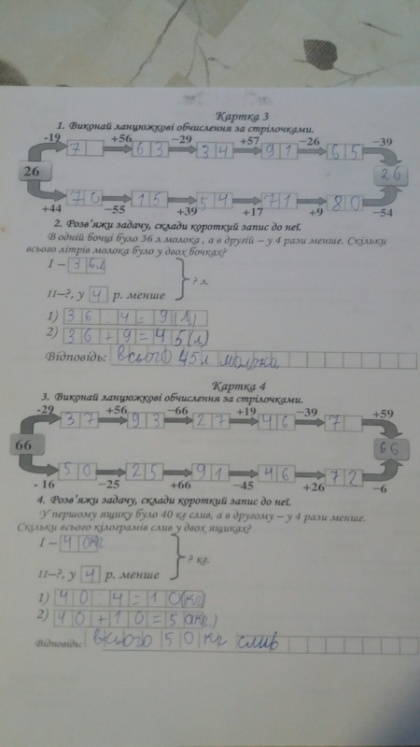 Картка 3
1. Виконай ланцюжкові обчислення за стрілочками.
-19 +56 -29 +57 -26 -39
7 63 34 91 65
26 26
70 15 54 71 80
+44 -55 +39 +17 +9 -54
2. Розв'яжи задачу, склади короткий запис до неї.
В одній бочці було 36 л молока , а в другій – у 4 рази менше. Скільки
всього літрів молока було у двох бочках?
I – 36л
? л.
II–?, у 4 р. менше
1) 36:4=9(л)
2) 36+9=45(л)
Відповідь: всього 45л молока
Картка 4
3. Виконай ланцюжкові обчислення за стрілочками.
-29 +56 -66 +19 -39 +59
37 93 27 46 7
66 66
50 25 91 46 72
- 16 -25 +66 -45 +26 -6
4. Розв'яжи задачу, склади короткий запис до неї.
У першому ящику було 40 кг слив, а в другому – у 4 рази менше.
Скільки всього кілограмів слив у двох ящиках?
I – 40кг
? кг.
II–?, у 4 р. менше
1) 40:4=10(кг)
2) 40+10=50(кг)
Відповідь: всього 50 кг слив